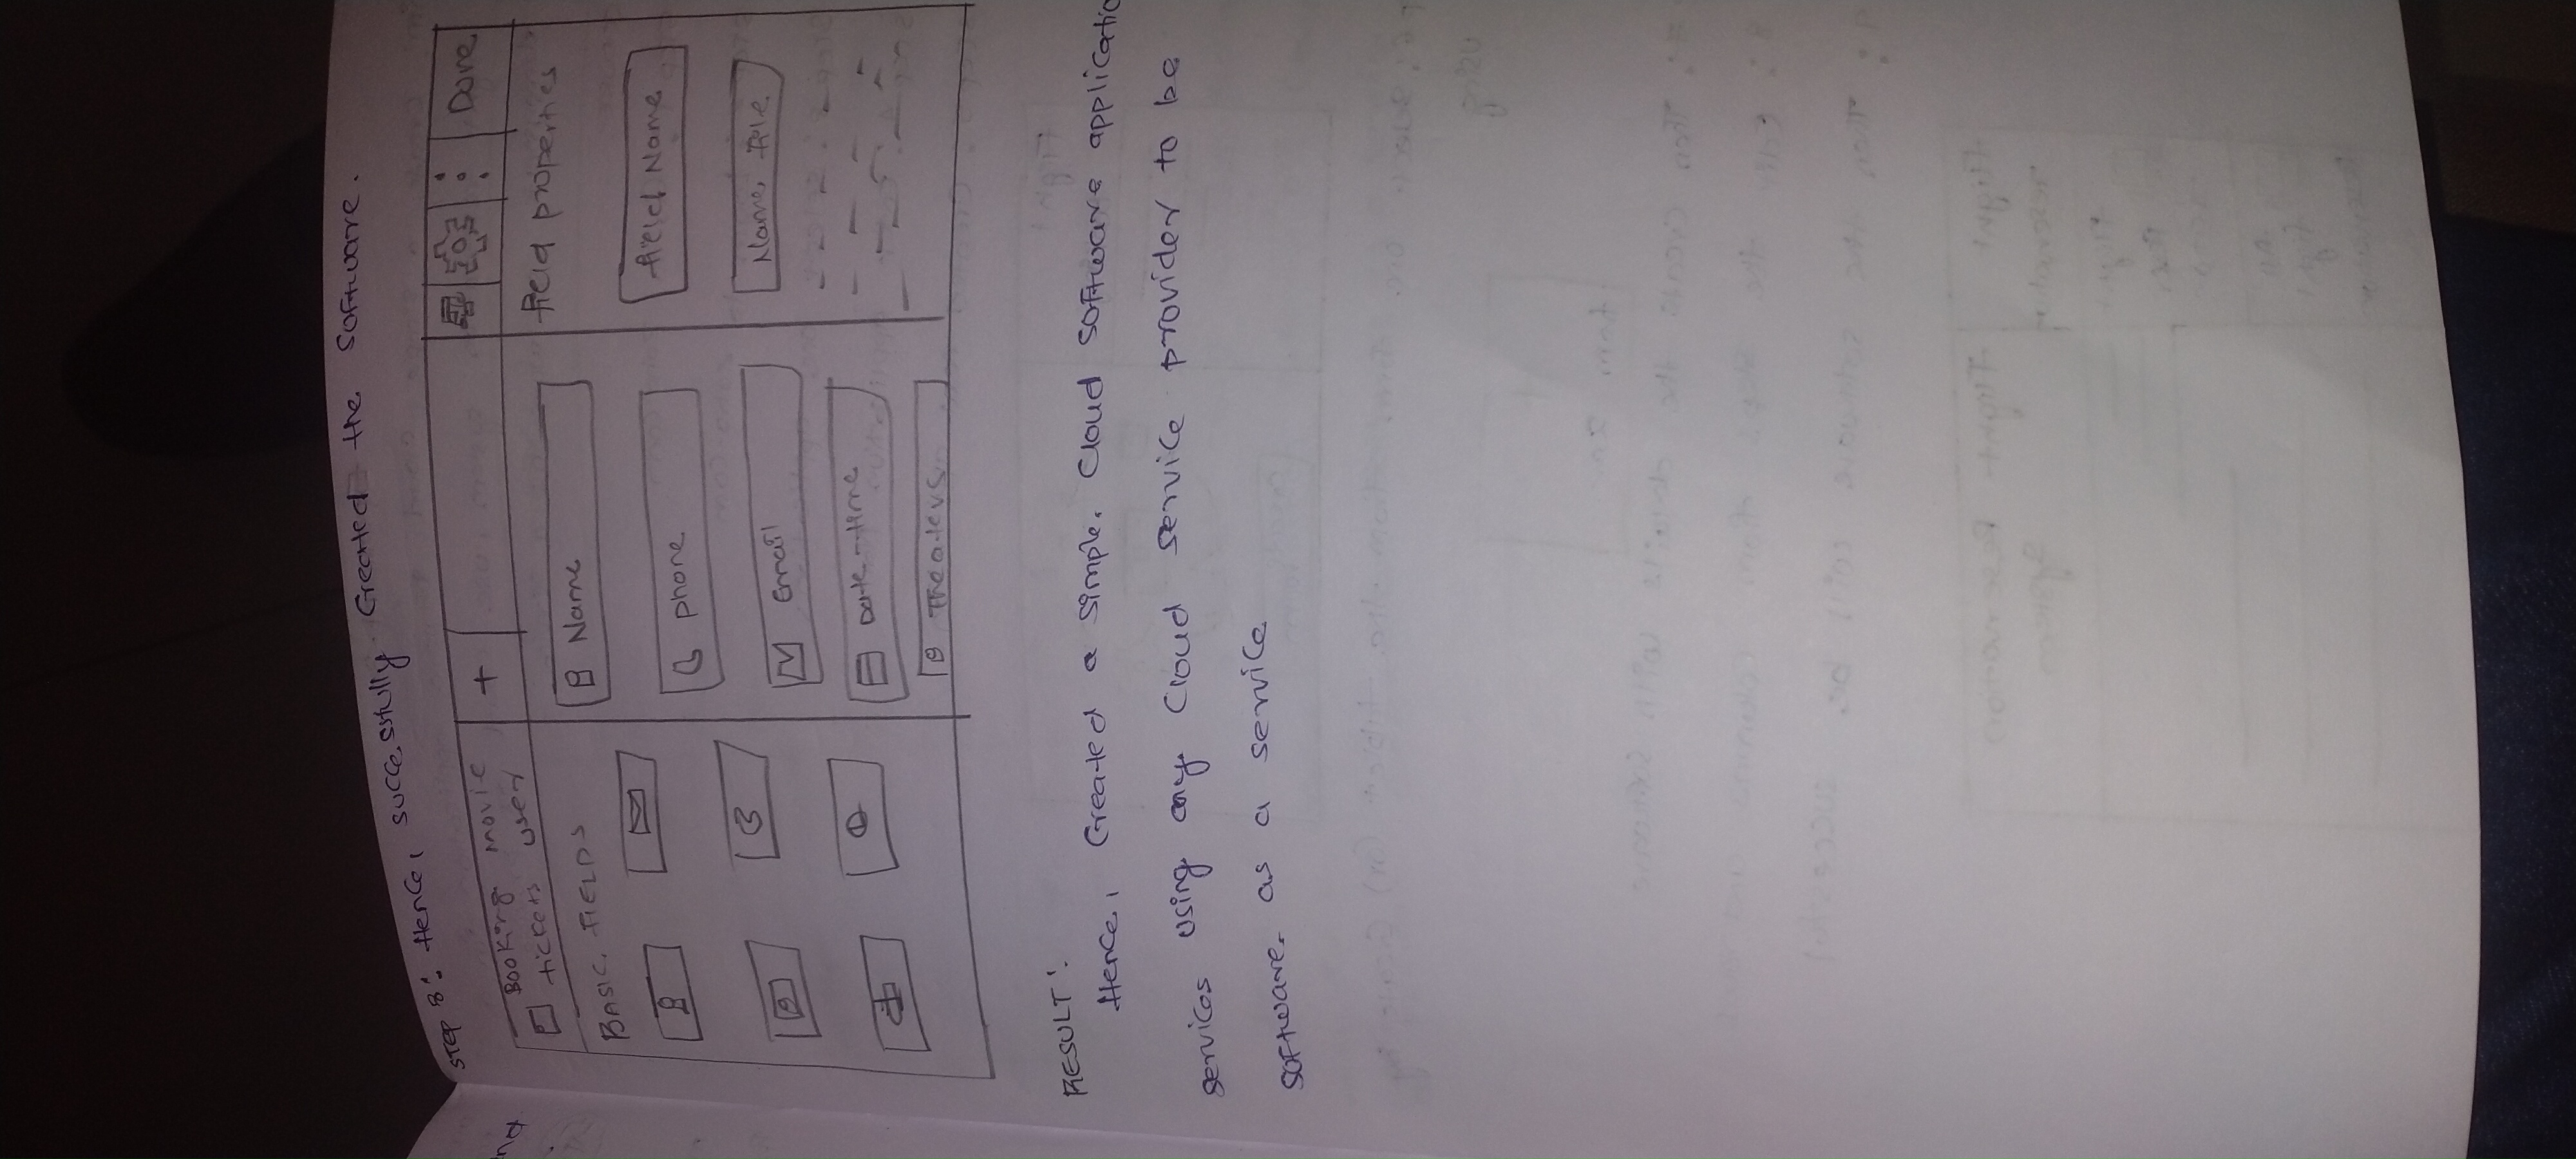 STEP 8: Hence, successfully Created the software.
Booking movie
tickets user
+
Done
BASIC FIELDS
Name
phone
Email
Date-time
Theatevs
field properties
field Name
Name title
RESULT:
Hence, Created a simple Cloud software applicatio
services using any Cloud service provider to be
software as a service